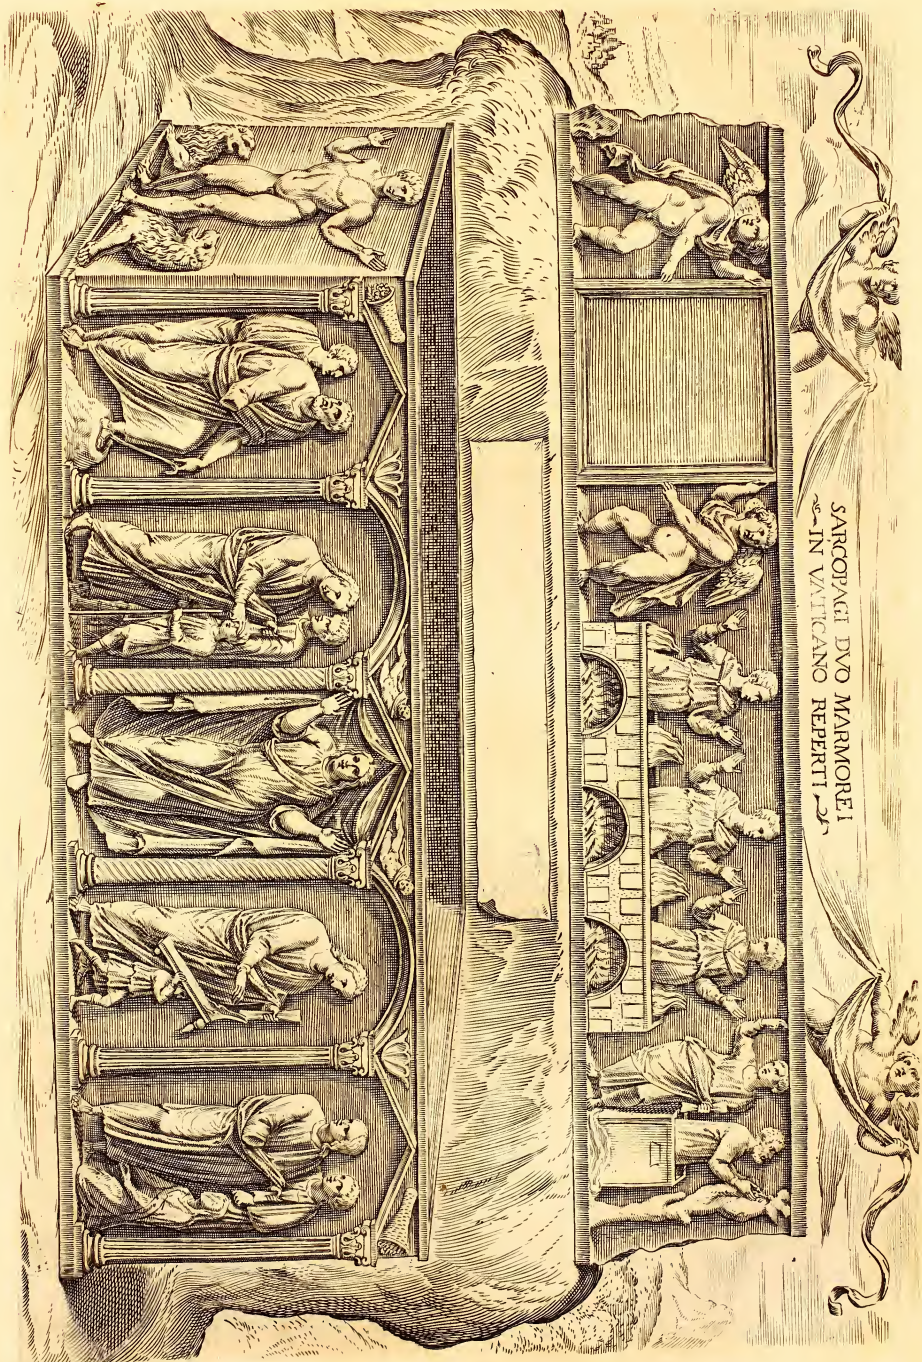 SARCOPAGI DVO MARMOREI
IN VATICANO REPERTI